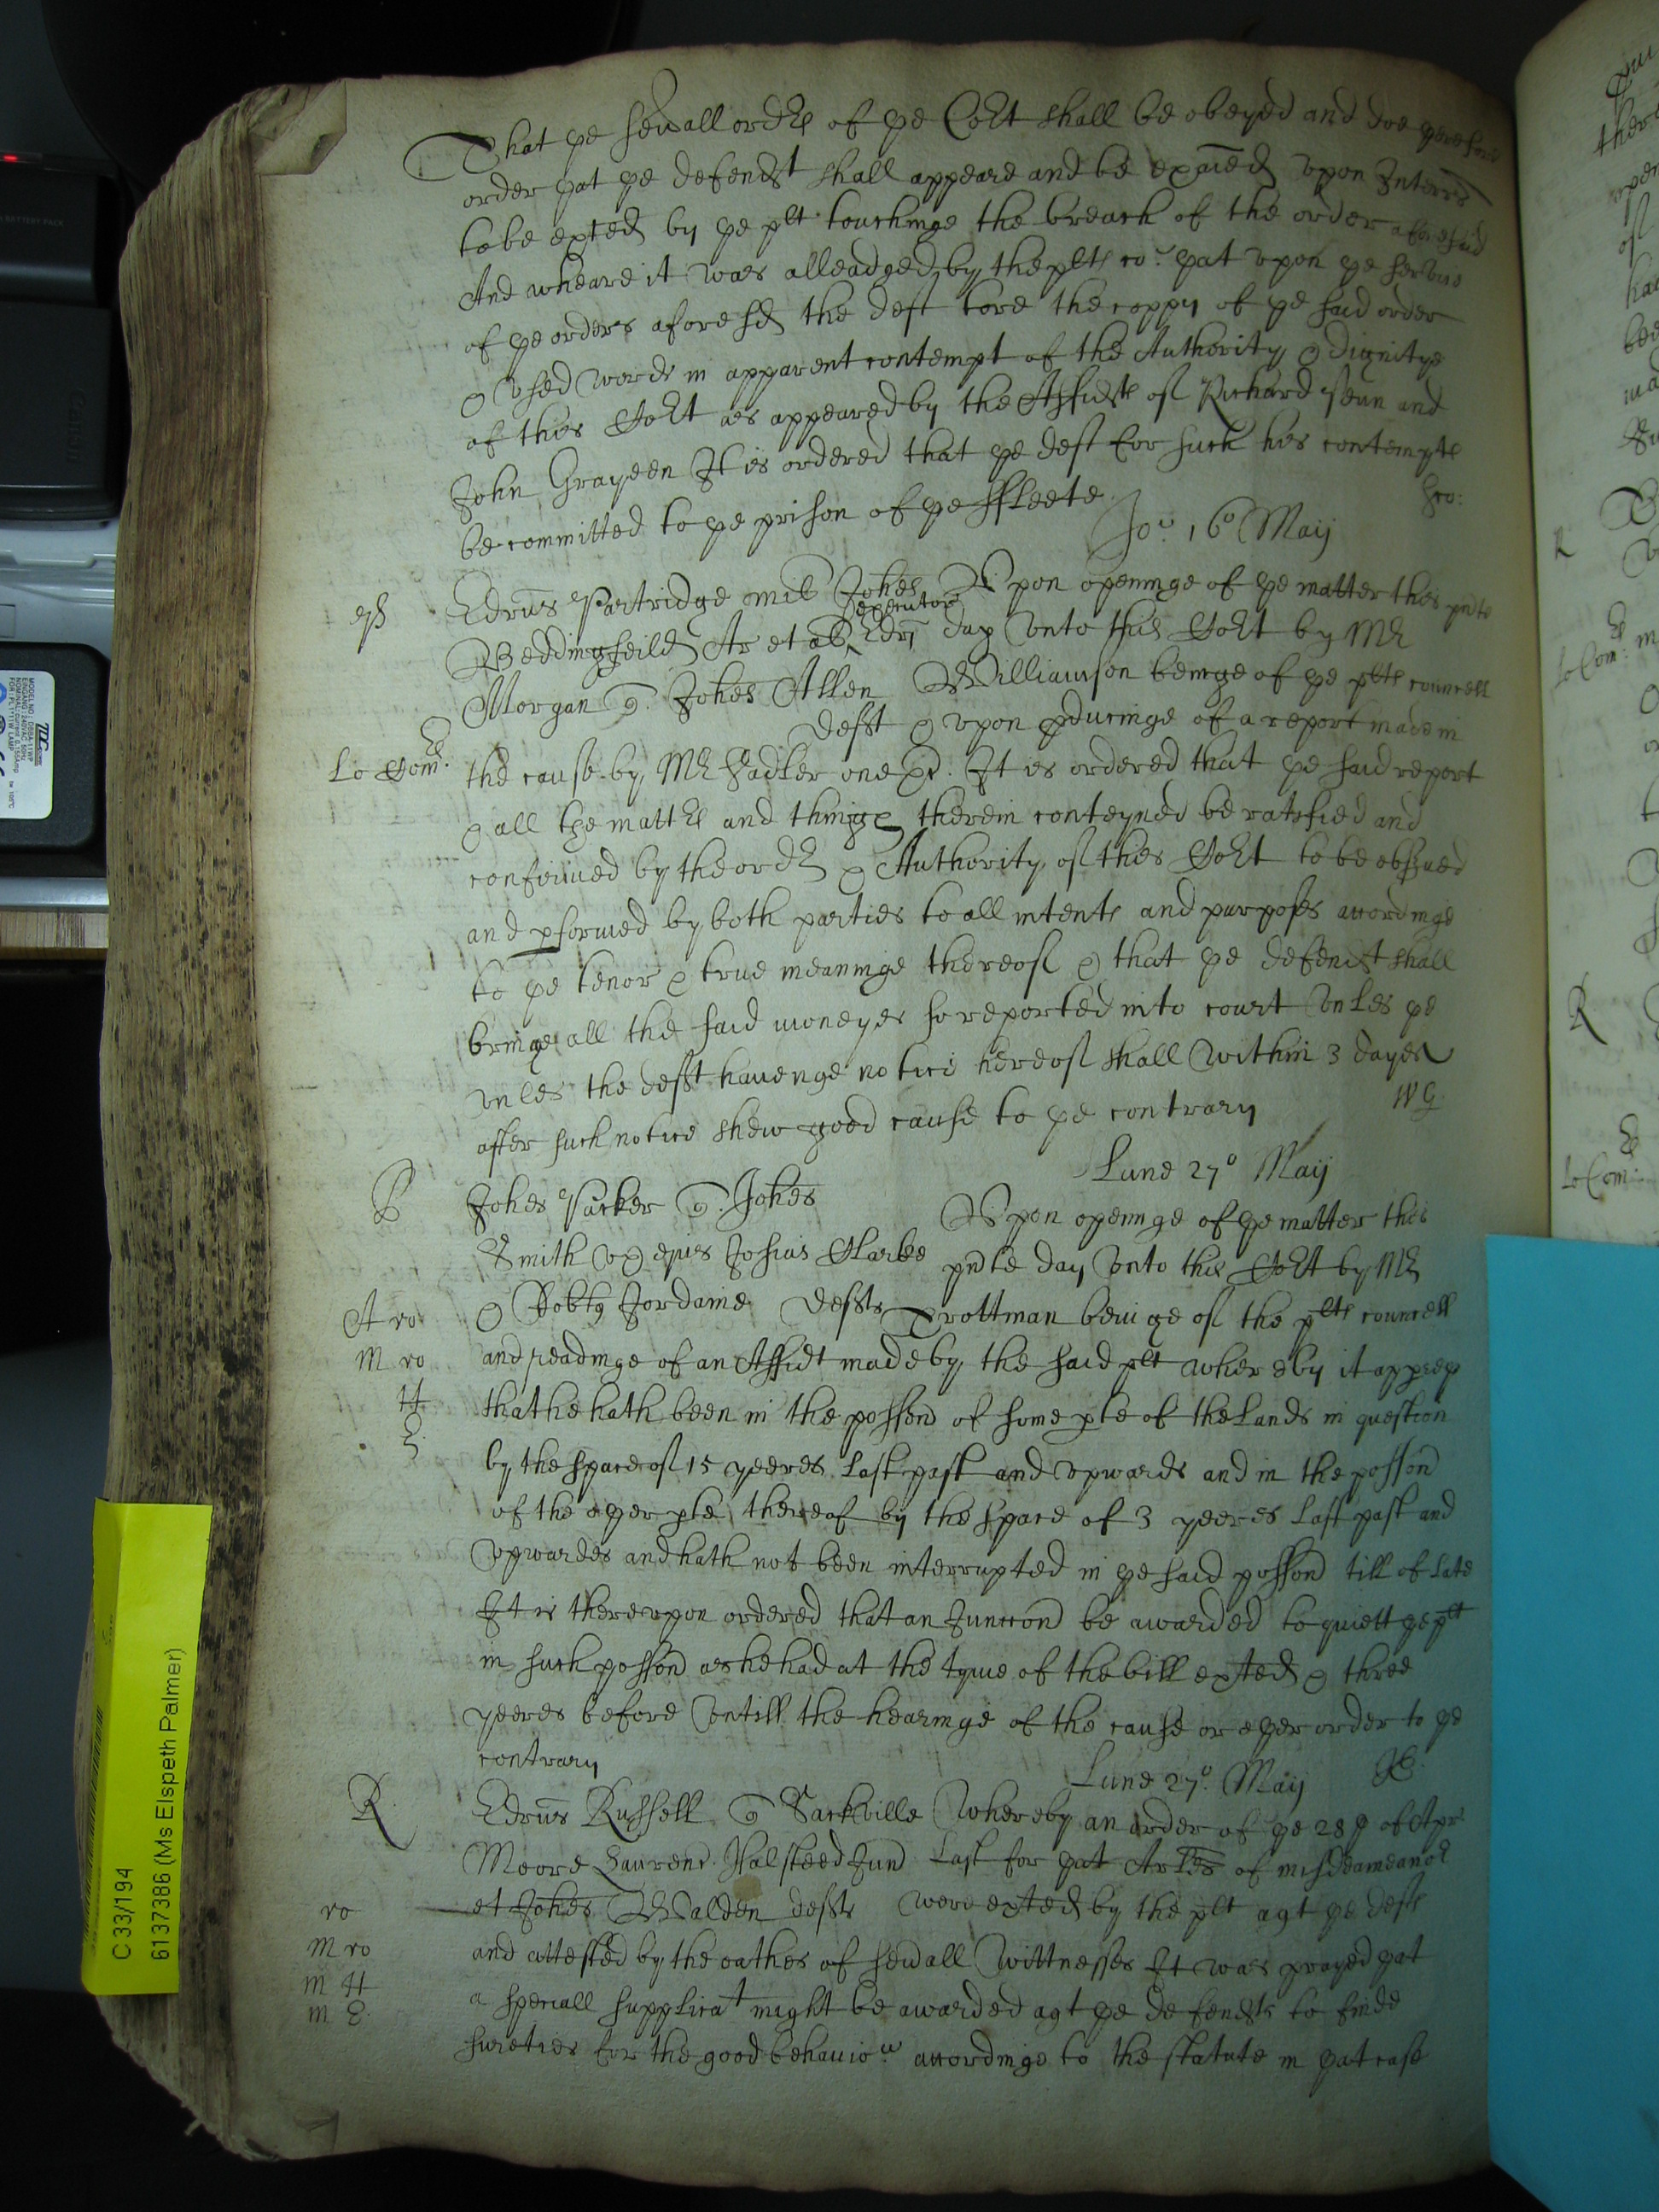 That ye seuall ordrs of ye Cort shall be obeyed and doe therefore
order yat ye defendt shall appeare and be exaied vpon Interrs
to be exted by ye plt touchinge the breach of the order aforesaid
And wheare it was alleadged by the plts co: yat vpon ye service
of ye orders aforesd the deft tore the coppy of ye said order
& vsed words in apparent contempt of the Authority & dignitye
of this Cort as appeared by the Affidts of Richard and
John Grayeen It is ordered that ye deft for such his contempte
be committed to ye prison of ye ffleete
Jo: 16o Maij
Edrus Partridge mil Johes Vpon openinge of ye matter this pnte
executor
Beddingfeild Ar et al Edri day vnto this Cort by Mr
Morgan q. Johes Allen Williamson beinge of ye plts councell
deft & vpon pducinge of a report made in
Lo Com:
the cause by Mr Sadler one &c. It is ordered that ye said report
& all the mattrs and things therein conteyned be ratefied and
confirmed by the ordr & Authority of this Cort to be obserued
and pformed by both parties to all intents and purposes accordinge
to ye tenor & true meaninge thereof & that ye defendt shall
bringe all the said moneyes so reported into court vnles ye
vnles the deft hauenge notice hereof shall within 3 dayes
after such notice shew good cause to ye contrary
WG
Lune 27o Maij
P
Johes Parker q. Johes
Vpon openinge of ye matter this
Smith vx eius Josias Clarke pnte day vnto this Cort by Mr
A ro
& Robtg Jordaine defts Prottman beinge of the plts councell
M ro
and readinge of an Affidt made by the said plt whereby it appeares
H
that he hath been in the possion of some pte of the Lands in question
E.
by the space of 15 yeeres last past and vpwards and in the possion
of the oyer pte thereof by the space of 3 yeeres last past and
vpwardes and hath not been interrupted in ye said possion till of late
It is therevpon ordered that an Junccion be awarded to quiett ye plt
in such possion as he had at the tyme of the bill exted & three
yeeres before vntill the hearinge of the cause or oyer order to ye
contrary
Lune 27o. Maij
R.
Edrus Russell q Sackville Whereby an order of ye 28 of Apr
Moore Laurenc. Halsteed Jun Last for yat Arles of misdeameanor
ro
et Johes Walden defts were exted by the plt agt ye defts
M ro
and attested by the oathes of seuall Wittnesses It was prayed yat
m H
a speciall supplicat might be awarded agt ye defendts to finde
m E.
sureties for the good behauior accordinge to the statute in yat case
C 33/194
6137386 (Ms Elspeth Palmer)